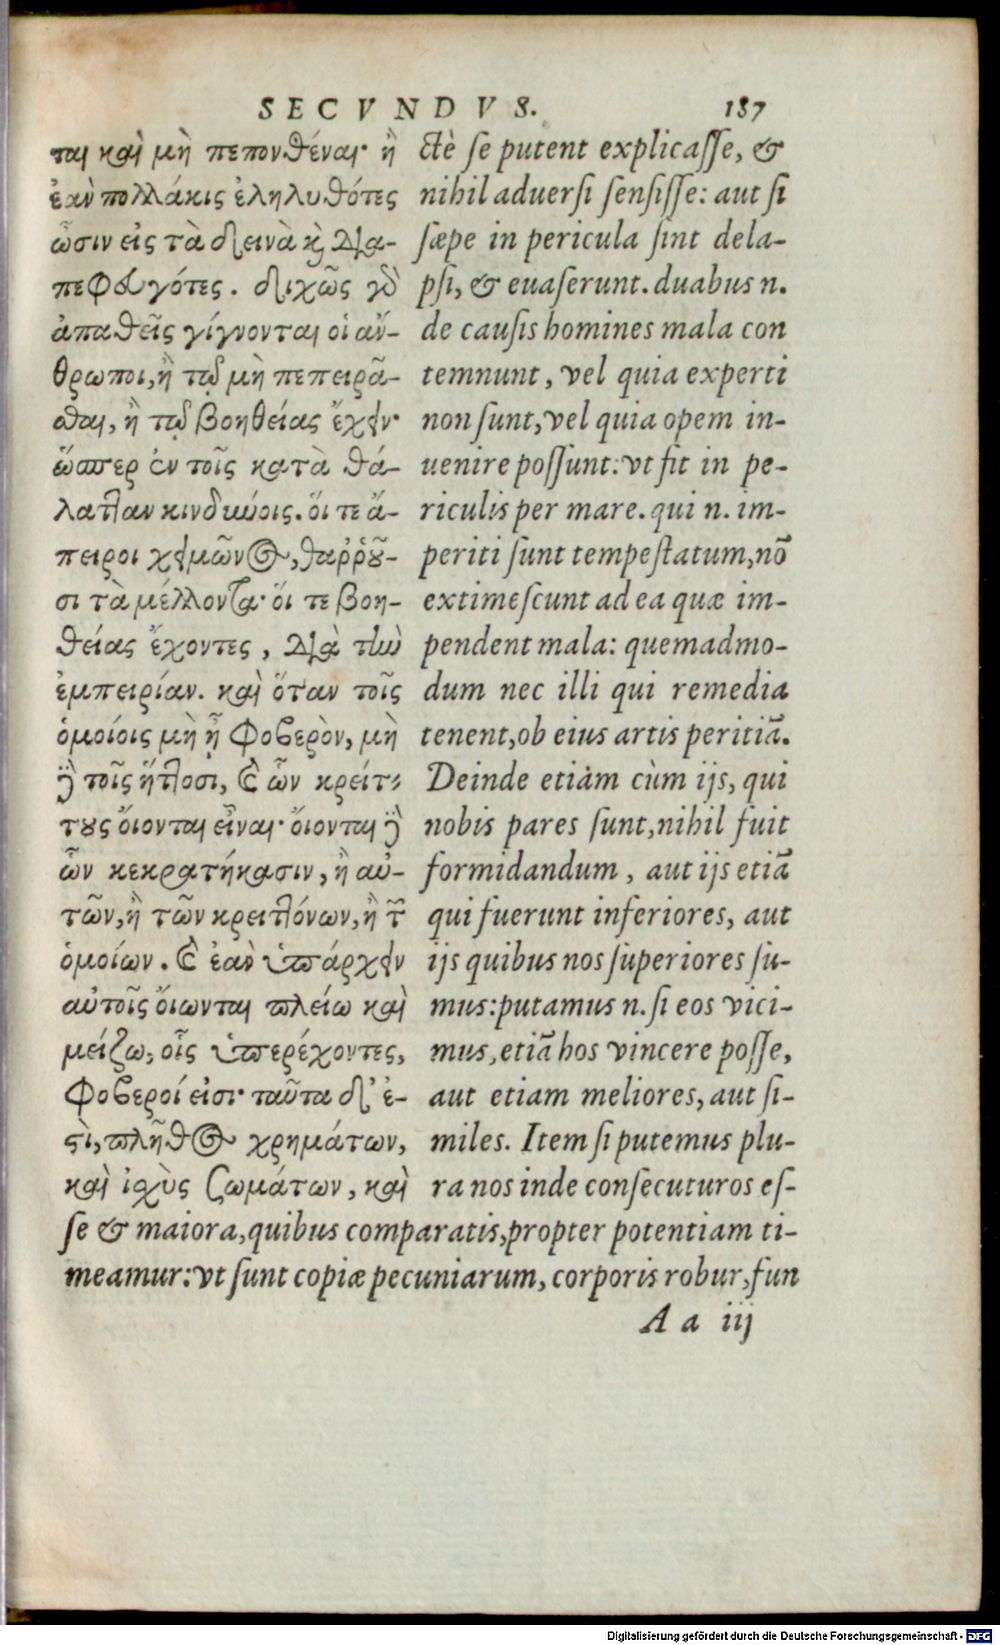 SECVNDVS. 187
ται καὶ μὴ πεπονθέναι· ἢ
ἐὰν πολλάκις ἐληλυθότες
ὦσιν εἰς τὰ δεινὰ κὶ δια-
πεφευγότες. διχῶς γὸ
ἀπαθεῖς γίγνονται οἱ ἄν-
θρωποι, ἢ τῷ μὴ πεπειρᾶ-
σθαι, ἢ τῷ βοηθείας ἔχειν·
ὥσπερ ἐν τοῖς κατὰ θά-
λατταν κινδιώοις. ὅι τε ἄ-
πειροι χειμῶνος, θαῤῥοῦ-
σι τὰ μέλλοντα· ὅι τε βοη-
θείας ἔχοντες, διὰ τὴν
ἐμπειρίαν. καὶ ὅταν τοῖς
ὁμοίοις μὴ ᾖ φοβερὸν, μὴ
δὲ τοῖς ἥττοσι, καὶ ὧν κρείτ-
τους ὄιονται εἶναι· ὄιονται δὲ
ὧν κεκρατήκασιν, ἢ αὐ-
τῶν, ἢ τῶν κρειττόνων, ἢ τῶν
ὁμοίων. καὶ ἐὰν ὑπάρχειν
αὐτοῖς ὄιωνται πλείω καὶ
μείζω, οἷς ὑπερέχοντες,
φοβεροί εἰσι· ταῦτα δ' ἐ-
στὶ, πλῆθος χρημάτων,
καὶ ἰχὺς σωμάτων, καὶ
ctè se putent explicasse, &
nihil aduersi sensisse: aut si
sæpe in pericula sint dela-
psi, & euaserunt. duabus n.
de causis homines mala con
temnunt, vel quia experti
non sunt, vel quia opem in-
uenire possunt: vt fit in pe-
riculis per mare. qui n. im-
periti sunt tempestatum, nō
extimescunt ad ea quæ im-
pendent mala: quemadmo-
dum nec illi qui remedia
tenent, ob eius artis peritiā.
Deinde etiam cùm ijs, qui
nobis pares sunt, nihil fuit
formidandum, aut ijs etiā
qui fuerunt inferiores, aut
ijs quibus nos superiores su-
mus: putamus n. si eos vici-
mus, etiā hos vincere posse,
aut etiam meliores, aut si-
miles. Item si putemus plu-
ra nos inde consecuturos es-
se & maiora, quibus comparatis, propter potentiam ti-
meamur: vt sunt copiæ pecuniarum, corporis robur, fun
A a iij
Digitalisierung gefördert durch die Deutsche Forschungsgemeinschaft - DFG